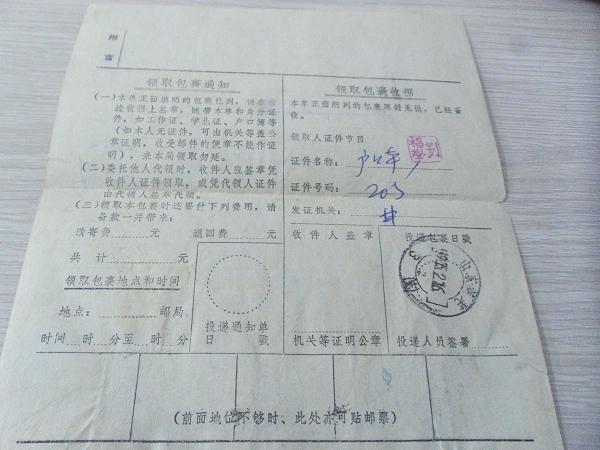 附
言
领取包裹通知
(一)本单正面填明的包裹已到,请在右
边收据上签章,随带本单和身分证
件,如工作证、学生证、户口簿等
(如本人无证件,可由机关等盖公
章证明,收受邮件的便章不能作证
明),来本局领取勿延。
(二)委托他人代领时,收件人应签章凭
收件人证件领取,或凭代领人证件
由代领人签章代领。
(三)领取本包裹时还要付下列费用,请
备款一并带来:
改寄费 元 退回费 元
共 计 元
领取包裹地点和时间
地点: 邮局
时间 时 分至 时 分
投递通知单
日 戳
领取包裹收据
本单正面所列的包裹原封无损,已经妥
收。
领取人证件节目
证件名称:
证件号码: 203
发证机关:
收件人盖章
机关等证明公章
投递包裹日戳
山东
投递人员签署
(前面地位不够时、此处亦可贴邮票)